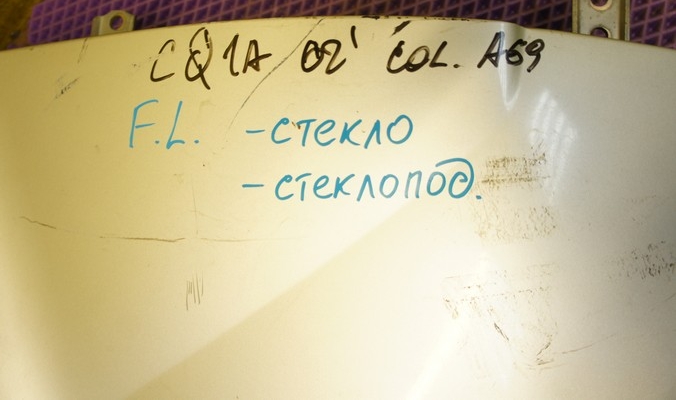 CQ1A 02' COL. A69
F.L. - стекло
- стеклопод.